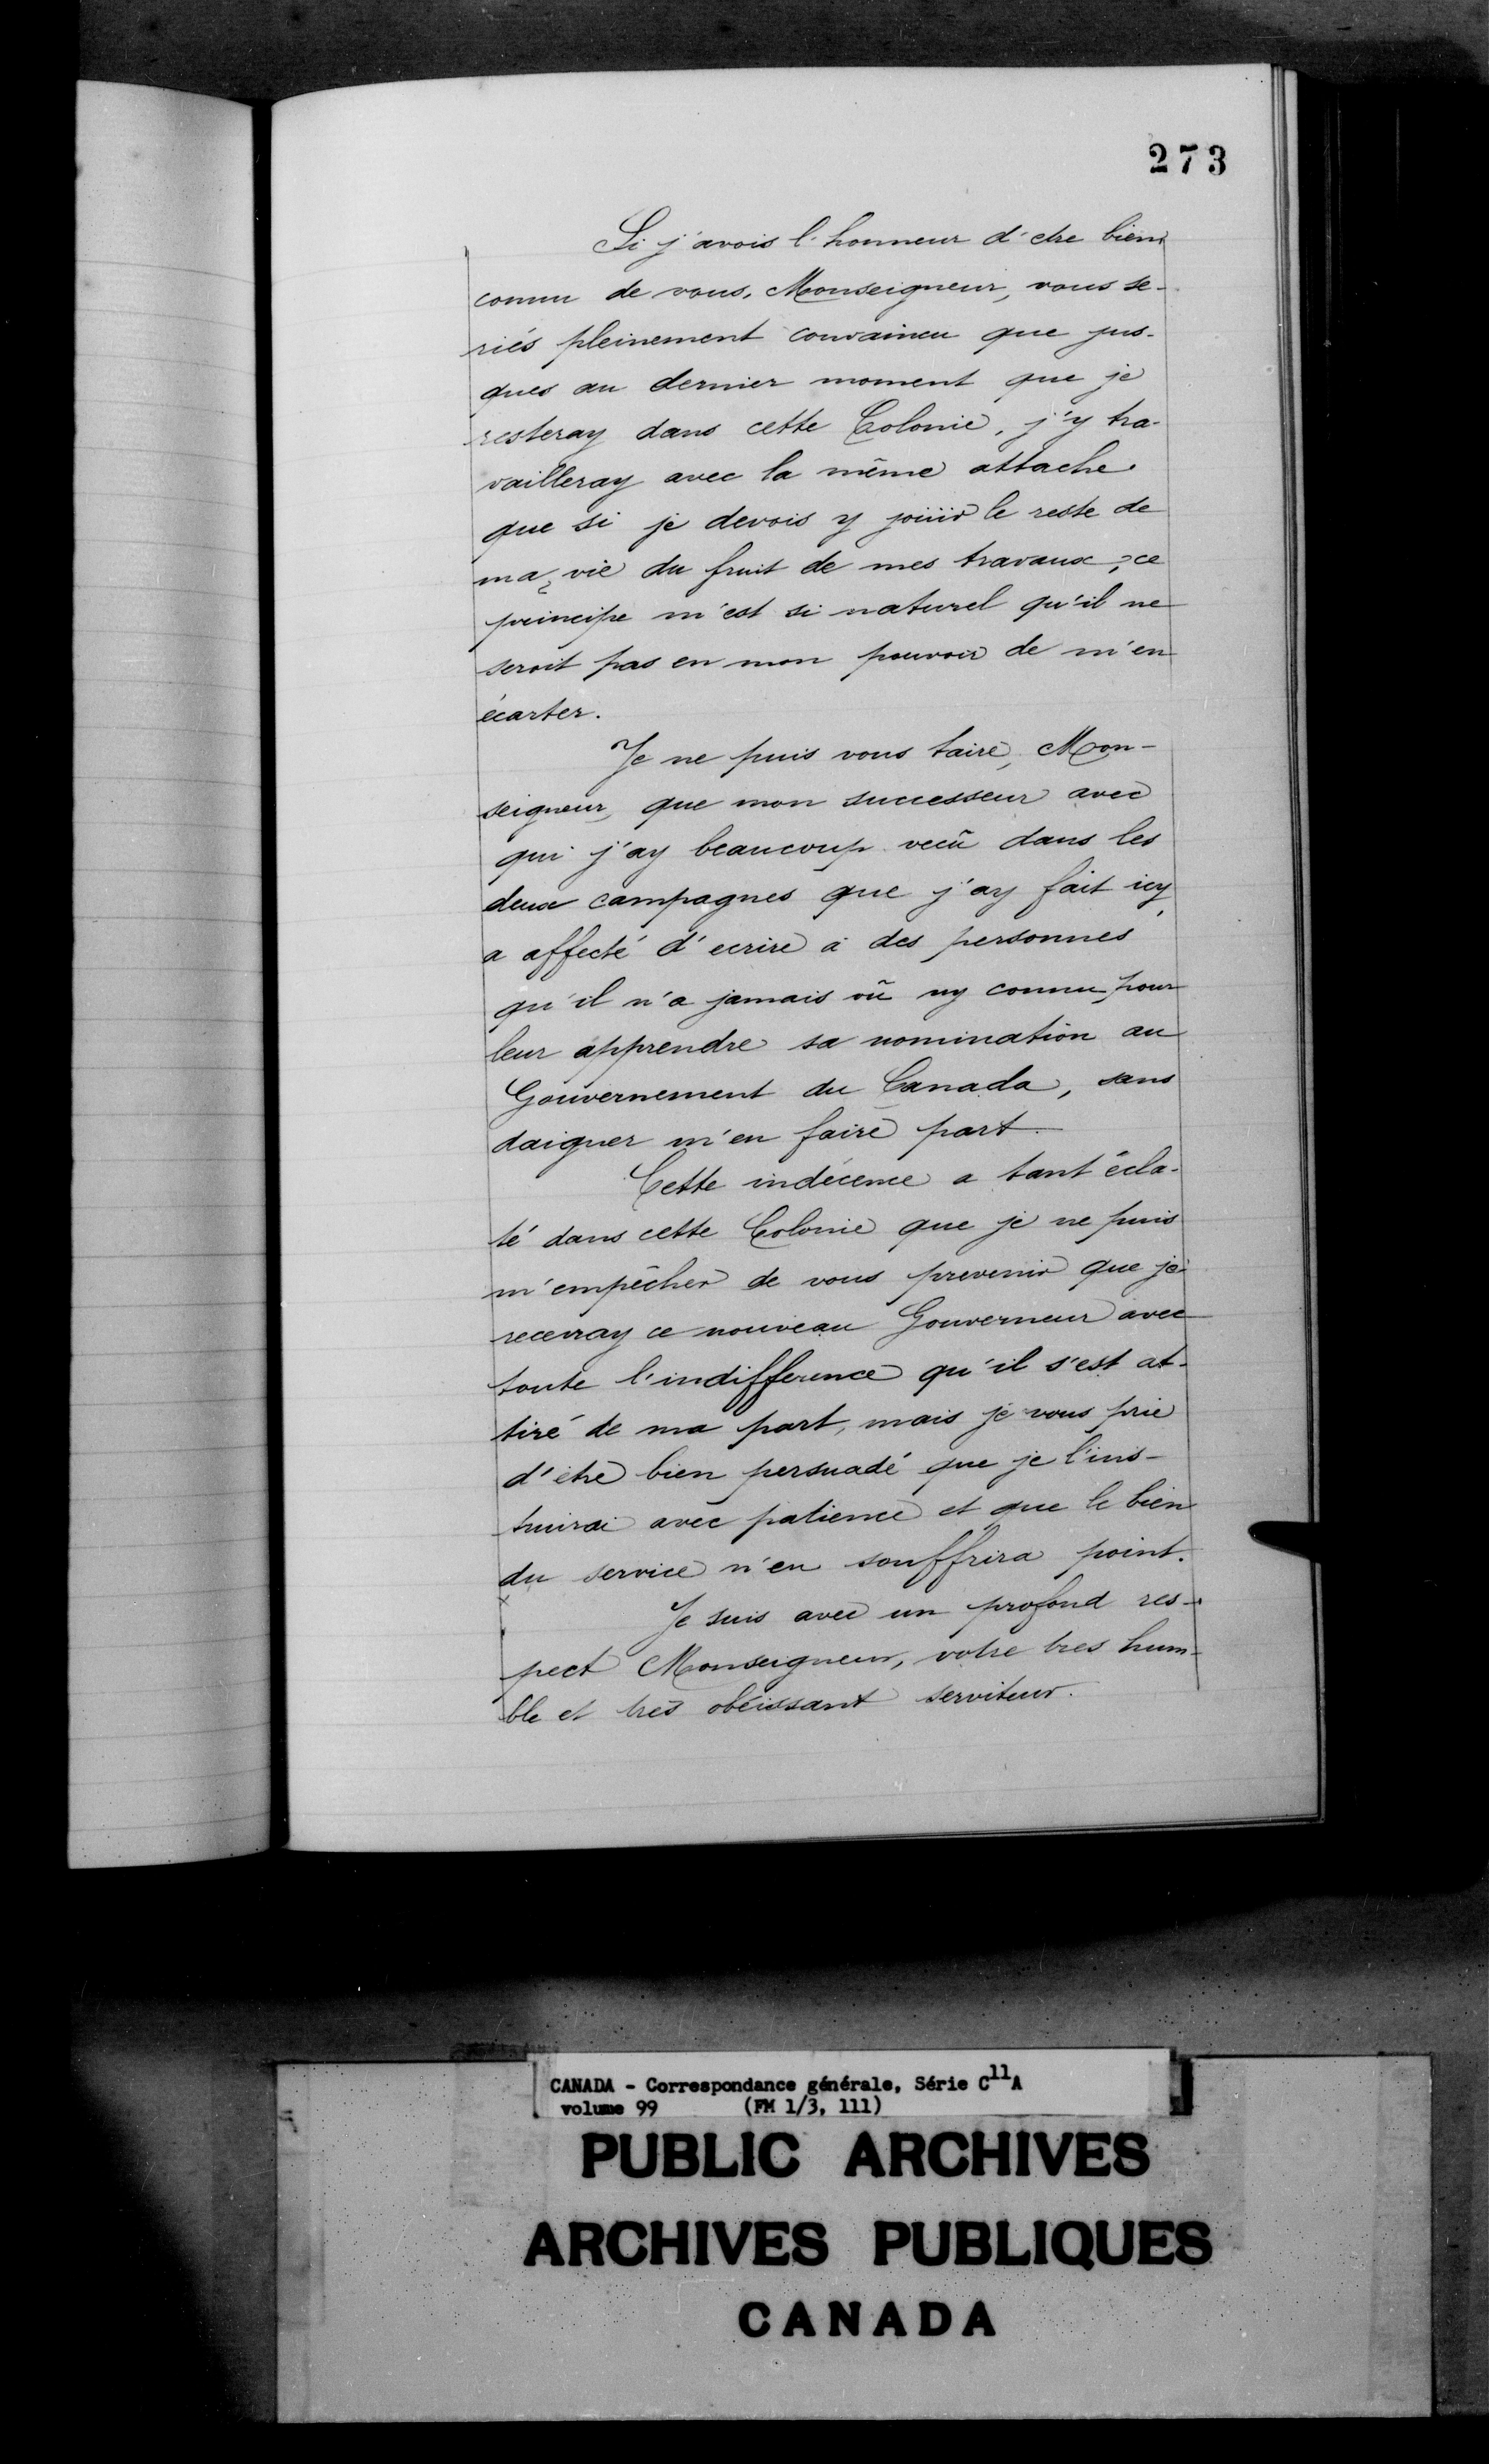 273
Si j'avois l'honneur d'etre bien
connu de vous, Monseigneur, vous se-
riés pleinement convaincu que jus-
ques au dernier moment que je
resteray dans cette Colonie, j'y tra-
vailleray avec la même attache
que si je devois y joüir le reste de
ma vie du fruit de mes travaux; ce
principe m'est si naturel qu'il ne
seroit pas en mon pouvoir de m'en
écarter.
Je ne puis vous taire, Mon-
seigneur, que mon successeur avec
qui j'ay beaucoup vecû dans les
deux campagnes que j'ay fait icy,
a affecté d'ecrire à des personnes
qu'il n'a jamais vû ny connu pour
leur apprendre sa nomination au
Gouvernement du Canada, sans
daigner m'en faire part.
Cette indécence a tant écla-
té dans cette Colonie que je ne puis
m'empêcher de vous prevenir que je
recevray ce nouveau Gouverneur avec
toute l'indifference qu'il s'est at-
tiré de ma part, mais je vous prie
d'être bien persuadé que je l'ins-
truirai avec patience et que le bien
du service n'en souffrira point.
Je suis avec un profond res-
pect Monseigneur, votre tres hum-
ble et très obéissant serviteur.
CANADA - Correspondance générale, Série C11A
volume 99 (FM 1/3, 111)
PUBLIC ARCHIVES
ARCHIVES PUBLIQUES
CANADA